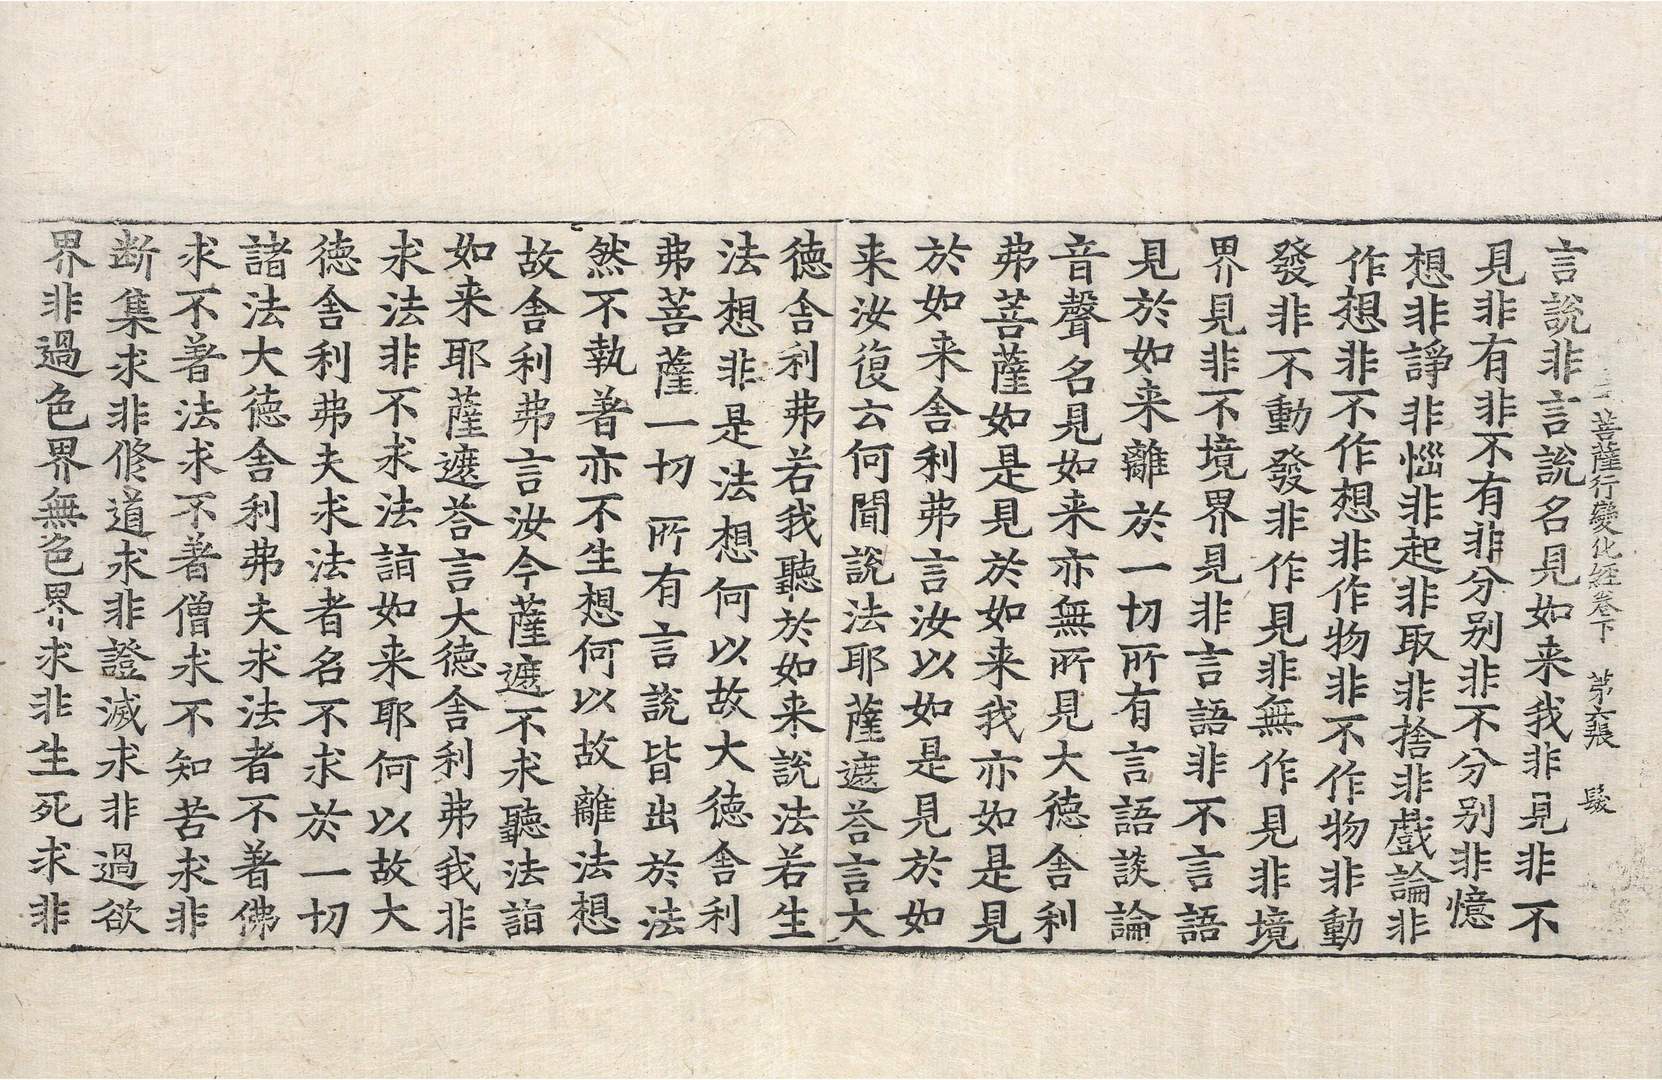 菩薩行變化經卷下 第六張 髮
言說非言說名見如来我非見非不
見非有非不有非分別非不分別非憶
想非諍非惱非起非取非捨非戲論非
作想非不作想非作物非不作物非動
發非不動發非作見非無作見非境
界見非不境界見非言語非不言語
見於如来離於一切所有言語談論
音聲名見如来亦無所見見大德舍利
弗菩薩如是見於如来我亦如是見
於如来舍利弗言汝以如是見於如
来汝復云何聞說法耶薩遮荅言大
德舍利弗若我聽於如来說法若生
法想非是法想何以故大德舍利
弗菩薩一切所有言說皆出於法
然不執著亦不生想何以故離法想
故舍利弗言汝今薩遮不求聽法詣
如来耶薩遮荅言大德舍利弗我非
求法非不求法詣如来耶何以故大
德舍利弗夫求法者名不求於一切
諸法大德舍利弗夫求法者不著佛
求不著法求不著僧求不知苦求非
断集求非修道求非證滅求非過欲
界非過色界無色界求非生死求非